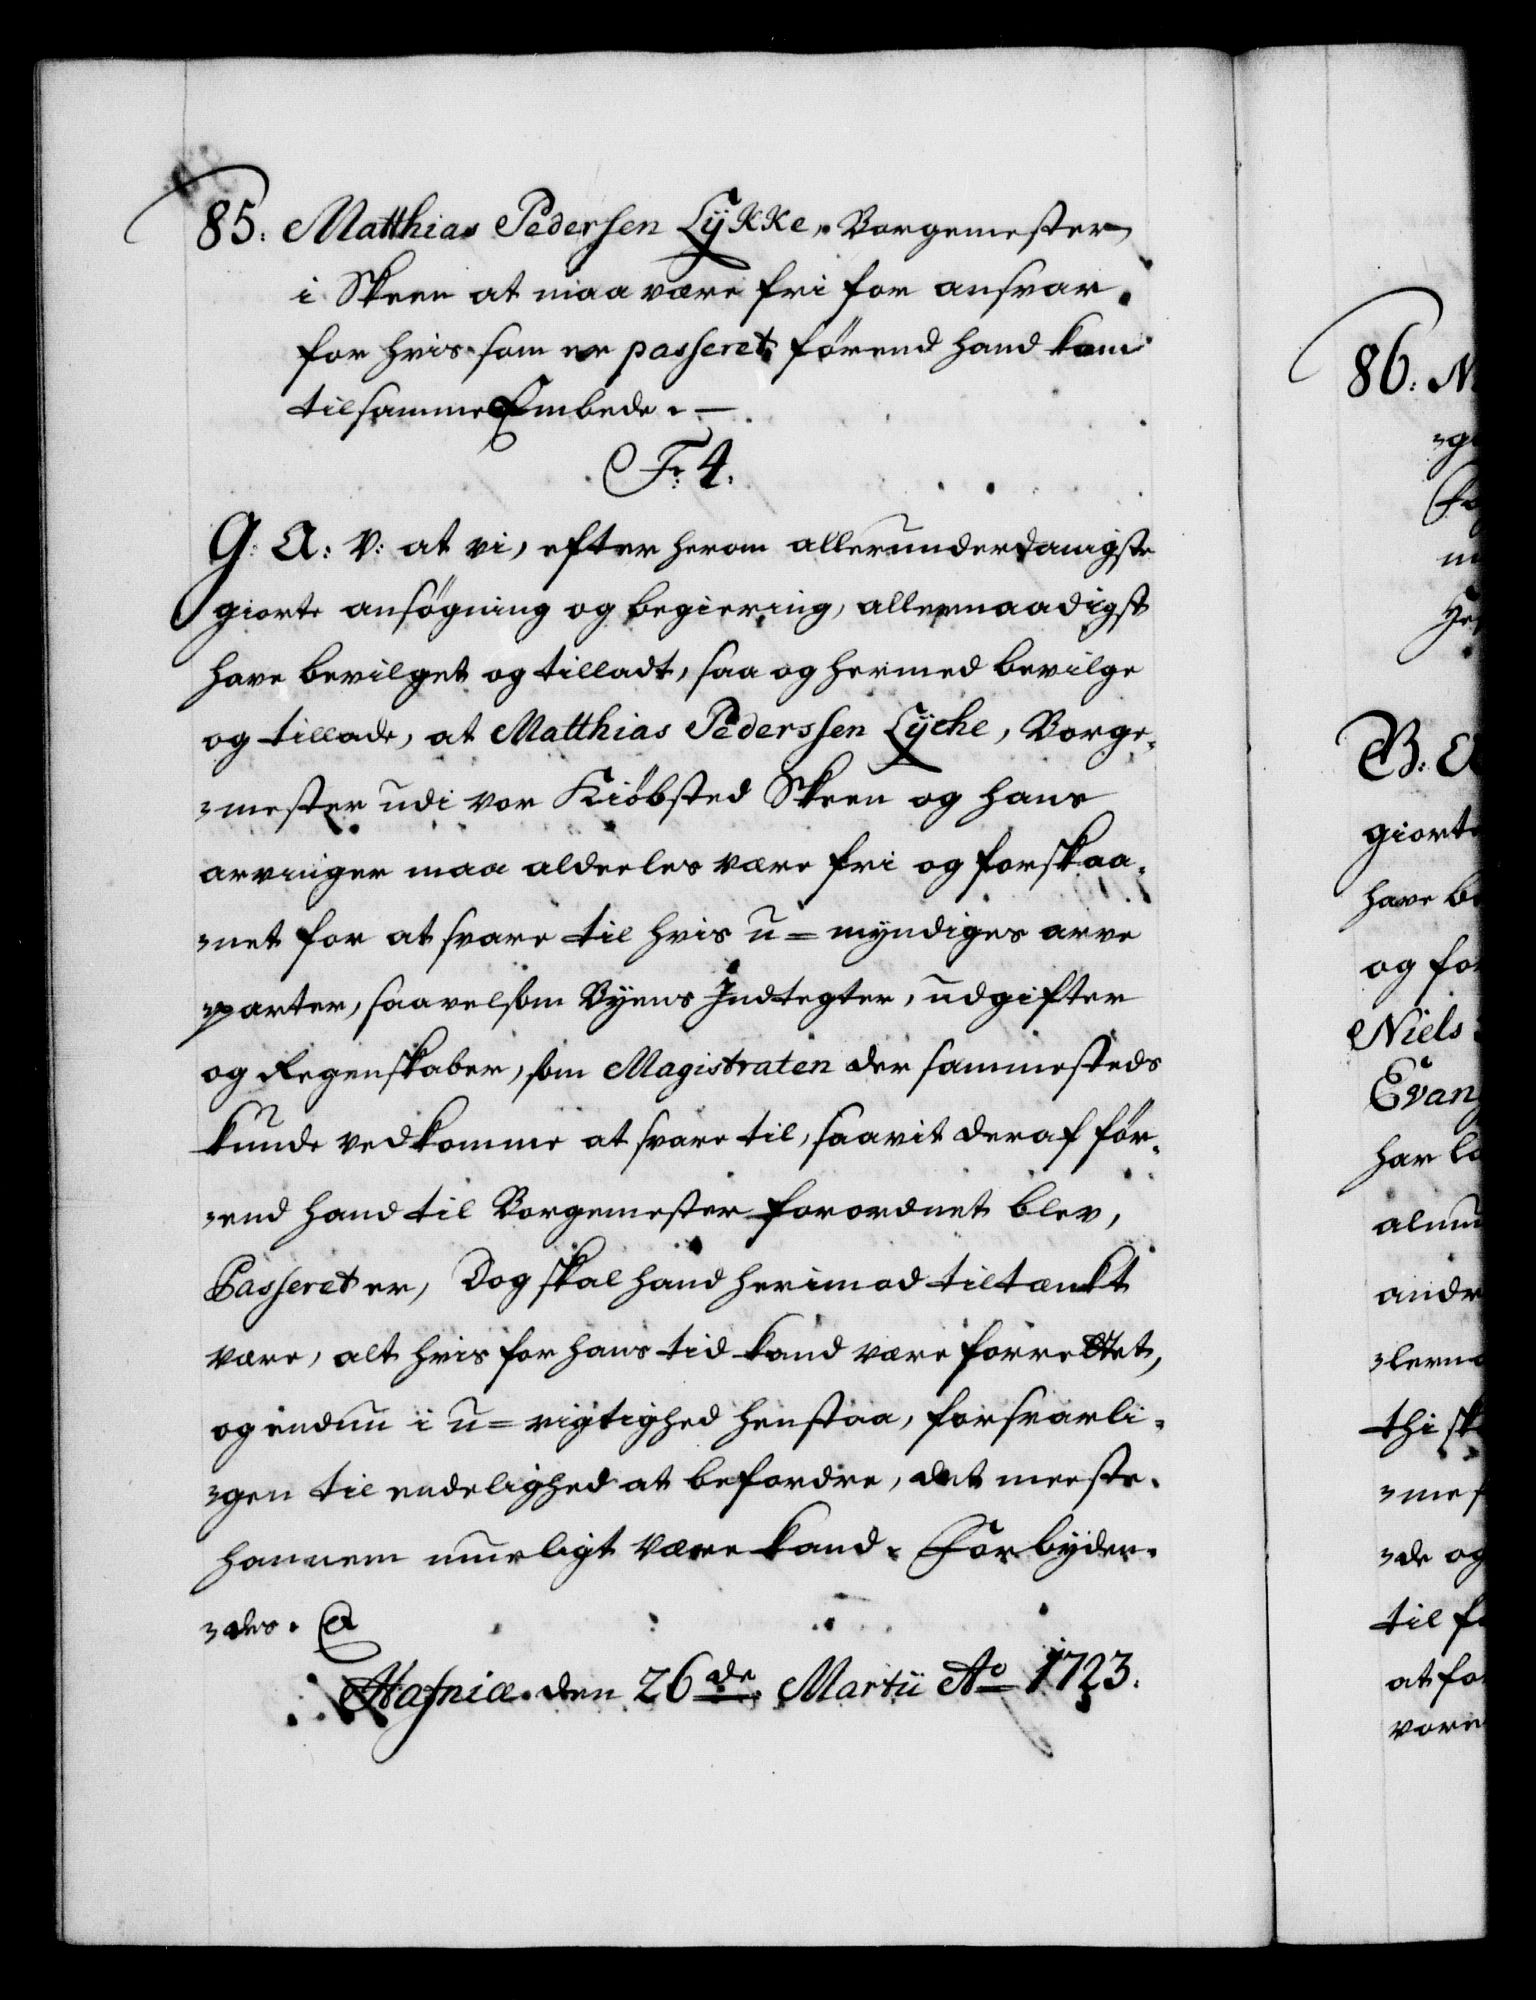 85. Matthias Pedersen Lÿkke, Borgemester
i Skeen at maa være fri for ansvar
for hvis som er passeret, förend hand kom
til samme Embede. —
F: 4.
G: A: V: at vi, efter herom allerunderdanigste
giorte ansögning og begiering, allernaadigst
have bevilget og tilladt, saa og hermed bevilge
og tillade, at Matthias Pederssen Lÿche, Borge-
mester udi vor Kiöbsted Skeen og hans
arvinger maa alderles være fri og forskaa-
net for at svare til hvis u=myndiges arve
parter, saavelsom Byens Indtegter, udgifter
og Regenskaber, som Magistraten der sammesteds
kunde vedkomme at svare til, saavit deraf för-
end hand til Borgemester forordnet blev,
Passeret er, Dog skal hand herimod tiltænkt
være, alt hvis for hans tid kand være forrettet,
og endnu i u=rigtighed henstaa, forsvarli-
gen til endelighed at befordre, det meeste
hannem mueligt være kand. Forbÿder-
des.
Hafniæ den 26de Martii Ao 1723.
86. N
giorte
have be
og for
Niels
Evan
har la
andr
thi sk
de og
til f
at fo
vore